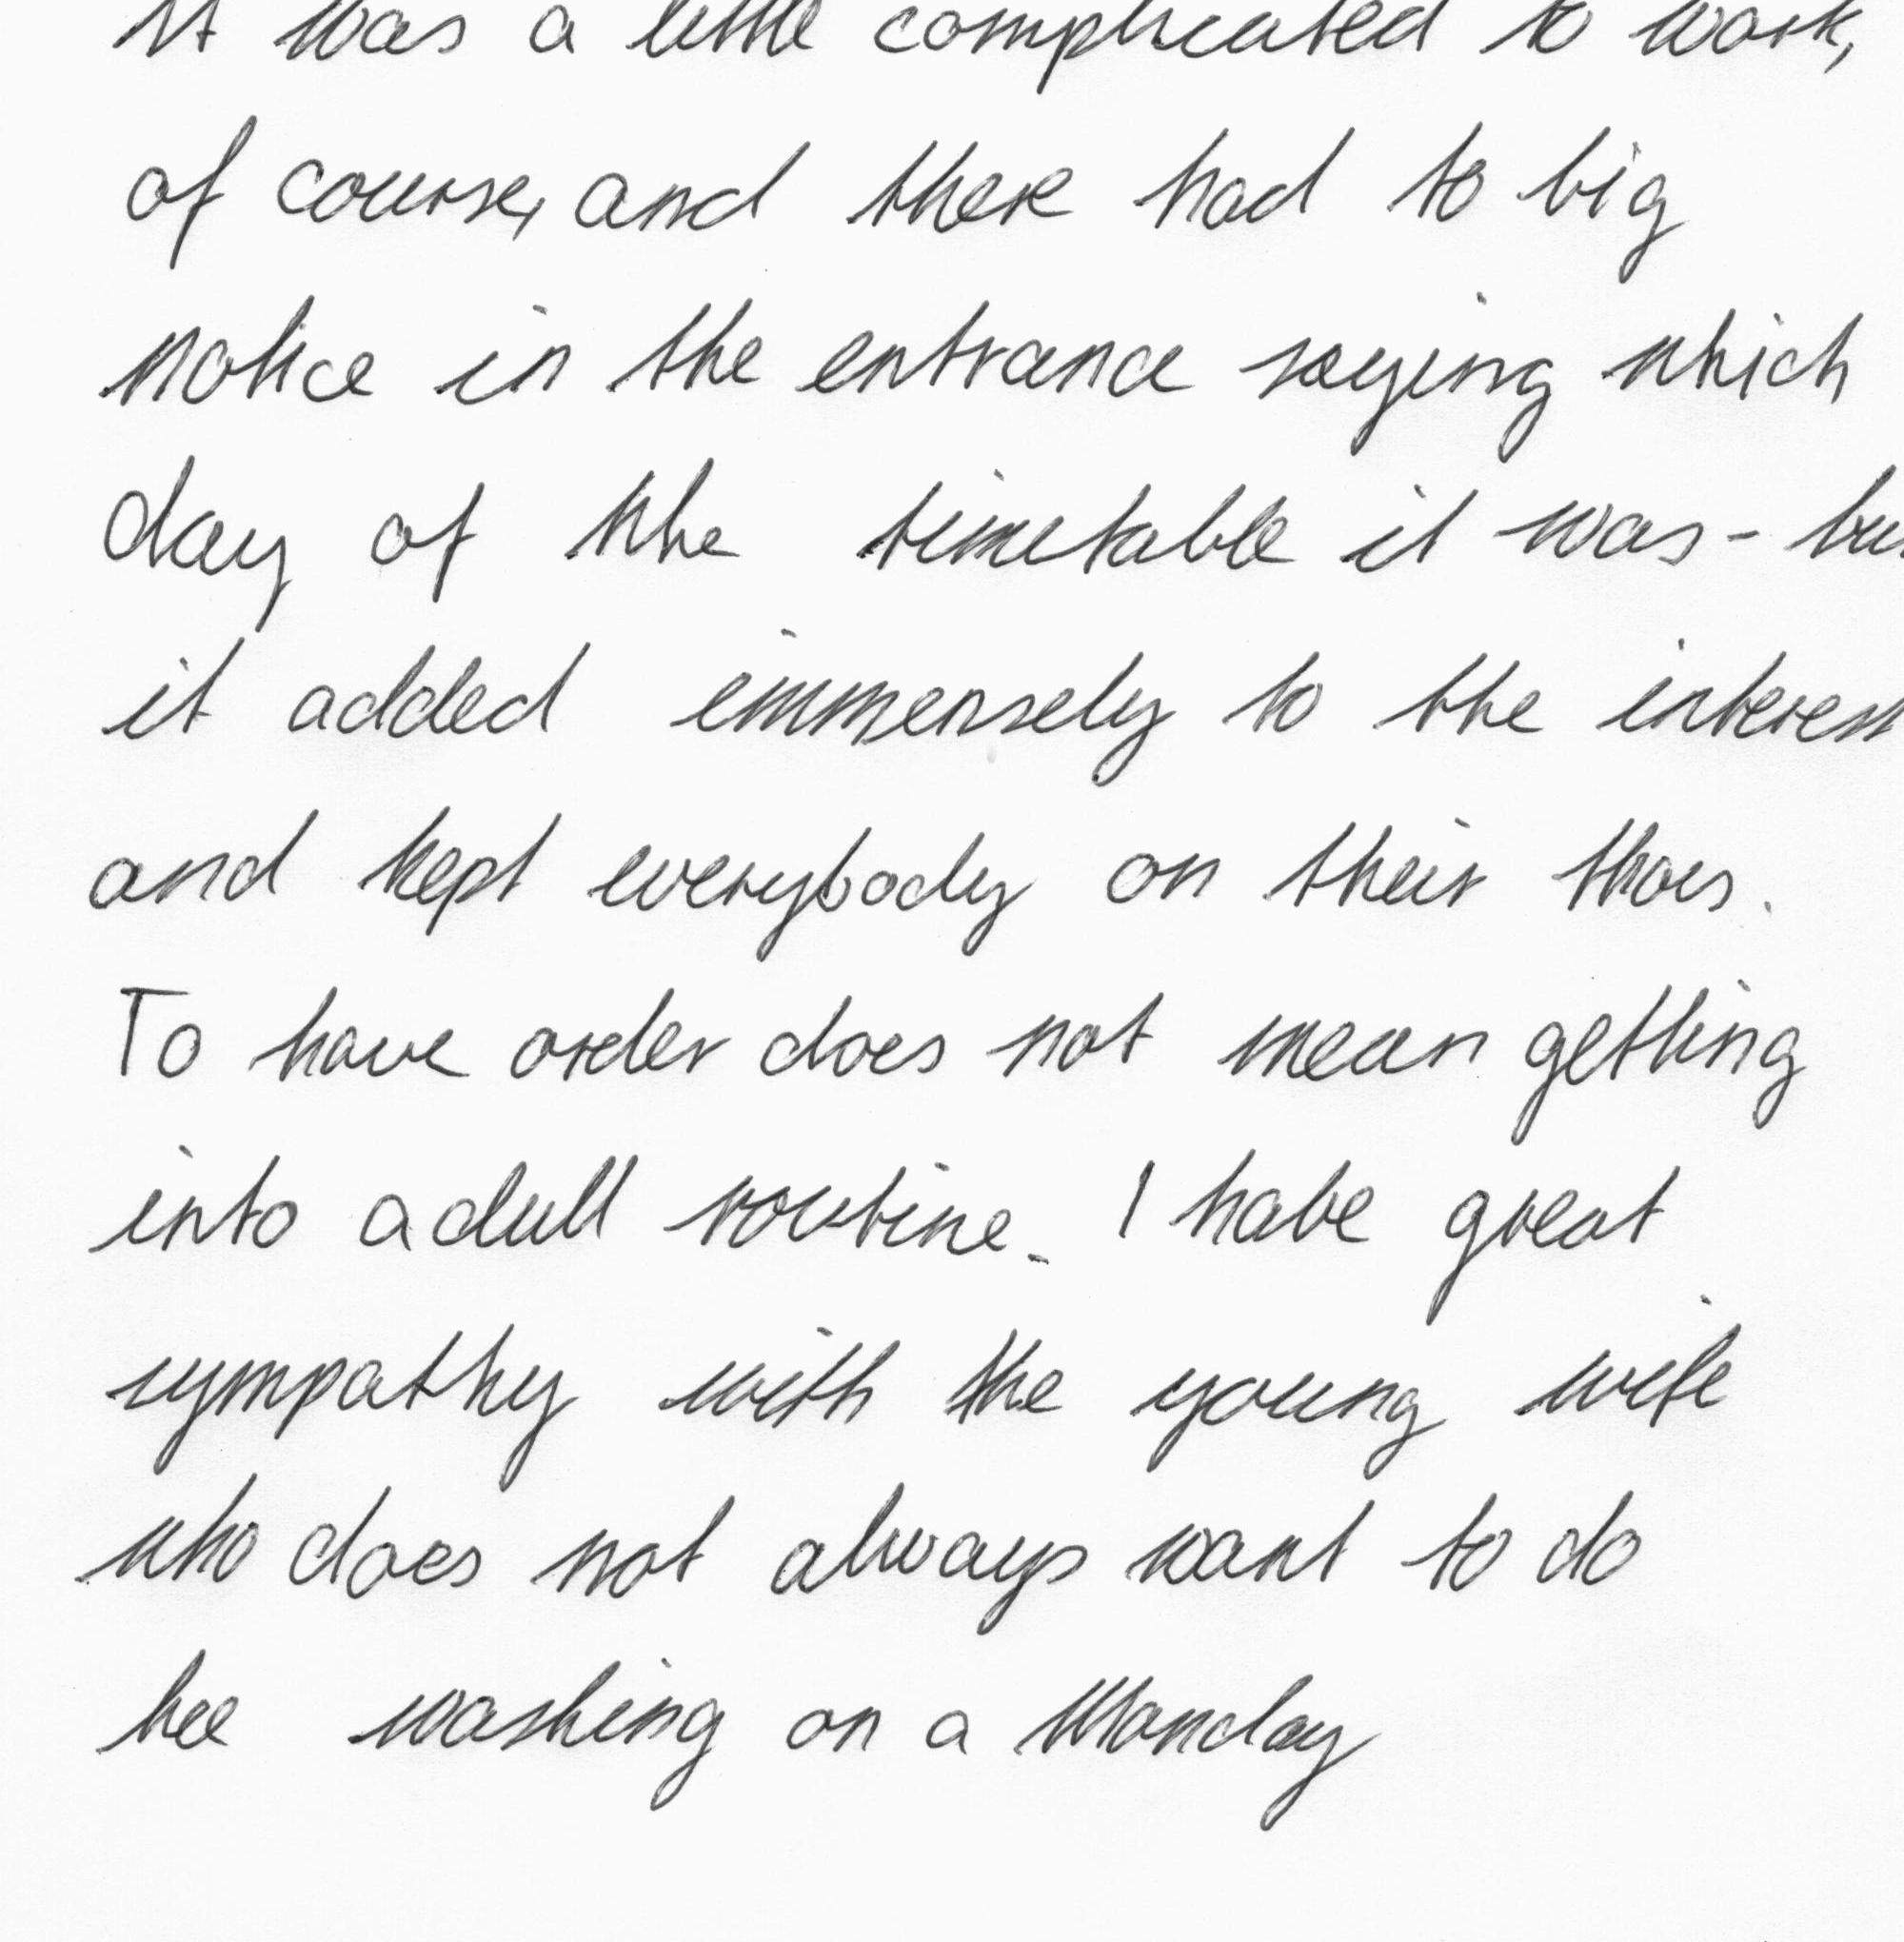 it was a little complicated to work,
of course, and there had to big
notice in the entrance saying which
day of the timetable it was - bu
it added immensely to the interest
and kept everybody on their thoes.
To have order does not mean getting
into a dull routine. I habe great
sympathy with the young wife
who does not always want to do
hee washing on a Monday